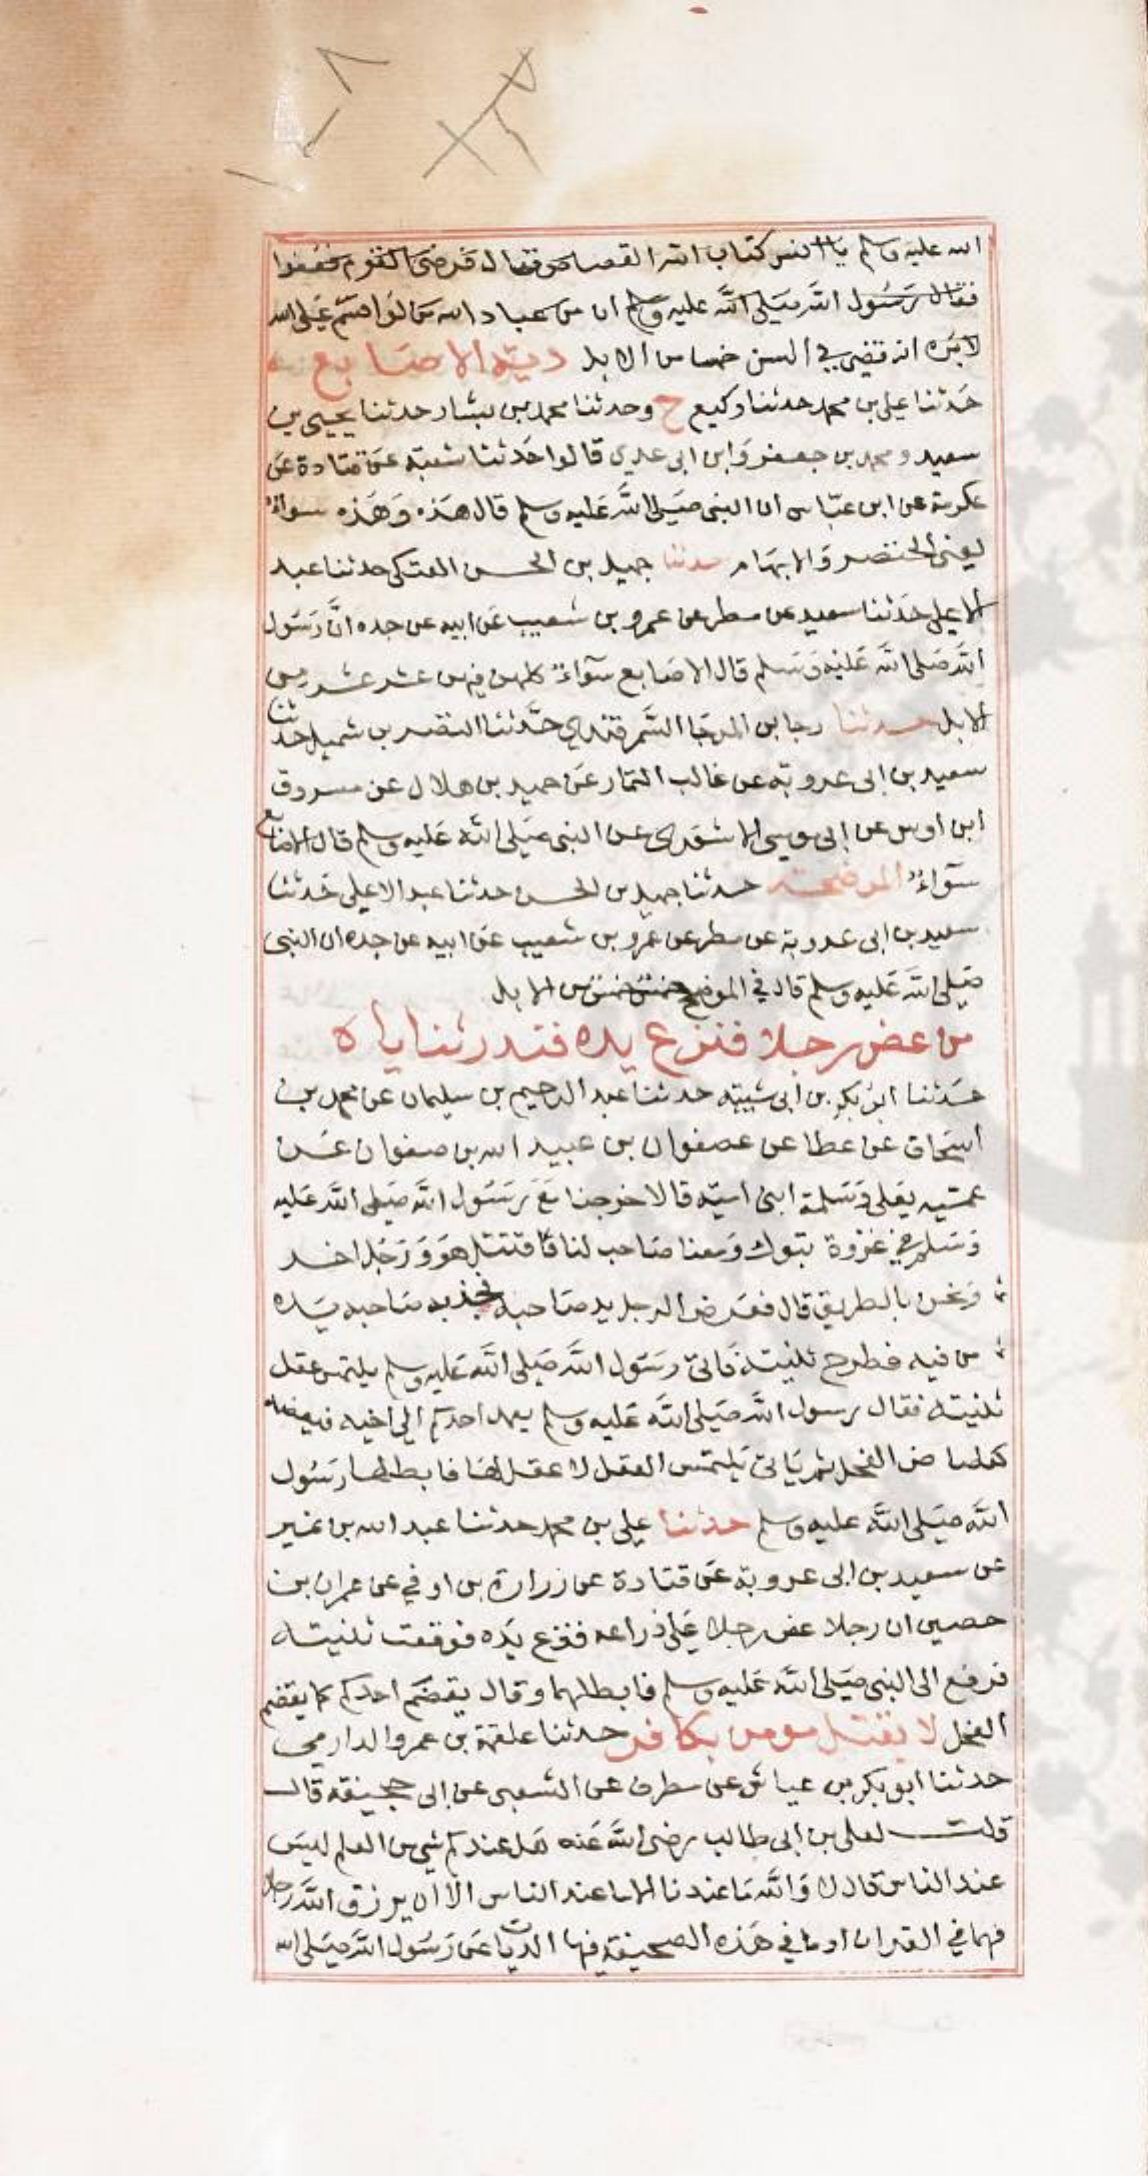 الله عليه وسلم يا انس كتاب الله القصاص فقال فرضى القوم فعفوا
فقال رسول الله صلى الله عليه وسلم ان من عباد الله من لو اقسم على الله
لابره انه قضى في السن خمسا من الابل دية الاصابع ه
حدثنا علي بن محمد حدثنا وكيع ح وحدثنا محمد بن بشار حدثنا يحيى بن
سعيد ومحمد بن جعفر وابن ابى عدي قالوا حدثنا شعبة عن قتادة عن
عكرمة عن ابن عباس ان النبى صلى الله عليه وسلم قال هذه وهذه سواء
يعني الخنصر والابهام حدثنا جميل بن الحسن العتكى حدثنا عبد
الاعلى حدثنا سعيد عن مطر عن عمرو بن شعيب عن ابيه عن جده ان رسول
الله صلى الله عليه وسلم قال الاصابع سواء كلهن فيهن عشر عشر من
الابل حدثنا رجا بن المرجا السمرقندي حدثنا النضر بن شميل حدثنا
سعيد بن ابى عروبة عن غالب التمار عن حميد بن هلال عن مسروق
ابن اوس عن ابى موسى الاشعرى عن النبى صلى الله عليه وسلم قال الاصابع
سواء الموضحة حدثنا جميل بن الحسن حدثنا عبد الاعلى حدثنا
سعيد بن ابى عروبة عن مطر عن عمرو بن شعيب عن ابيه عن جده ان النبى
صلى الله عليه وسلم قال في المواضح خمس خمس من الابل
من عض رجلا فنزع يده فندر ثناياه
حدثنا ابو بكر بن ابى شيبة حدثنا عبد الرحيم بن سليمان عن محمد بن
اسحاق عن عطا عن صفوان بن عبيد الله بن صفوان عن
عميه يعلى وسلمة ابنى امية قالا خرجنا مع رسول الله صلى الله عليه
وسلم في غزوة تبوك ومعنا صاحب لنا فاقتتل هو ورجل اخر
ونحن بالطريق قال فعض الرجل يد صاحبه فجذب صاحبه يده
من فيه فطرح ثنيته فاتى رسول الله صلى الله عليه وسلم يلتمس عقل
ثنيته فقال رسول الله صلى الله عليه وسلم يعمد احدكم الى اخيه فيعضه
كعضاض الفحل ثم ياتى يلتمس العقل لا عقل لها فابطلها رسول
الله صلى الله عليه وسلم حدثنا علي بن محمد حدثنا عبد الله بن نمير
عن سعيد بن ابى عروبة عن قتادة عن زرارة بن اوفي عن عمران بن
حصين ان رجلا عض رجلا على ذراعه فنزع يده فوقعت ثنيته
فرفع الى النبى صلى الله عليه وسلم فابطلها وقال يقضم احدكم كما يقضم
الفحل لا يقتل مومن بكافر حدثنا علقمة بن عمرو الدارمي
حدثنا ابو بكر بن عياش عن مطرف عن الشعبى عن ابى جحيفة قال
قلت لعلى بن ابى طالب رضى الله عنه هل عندكم شي من العلم ليس
عند الناس قال لا والله ما عندنا الا ما عند الناس الا ان يرزق الله رجلا
فهما في القران او ما في هذه الصحيفة فيها الديات عن رسول الله صلى الله